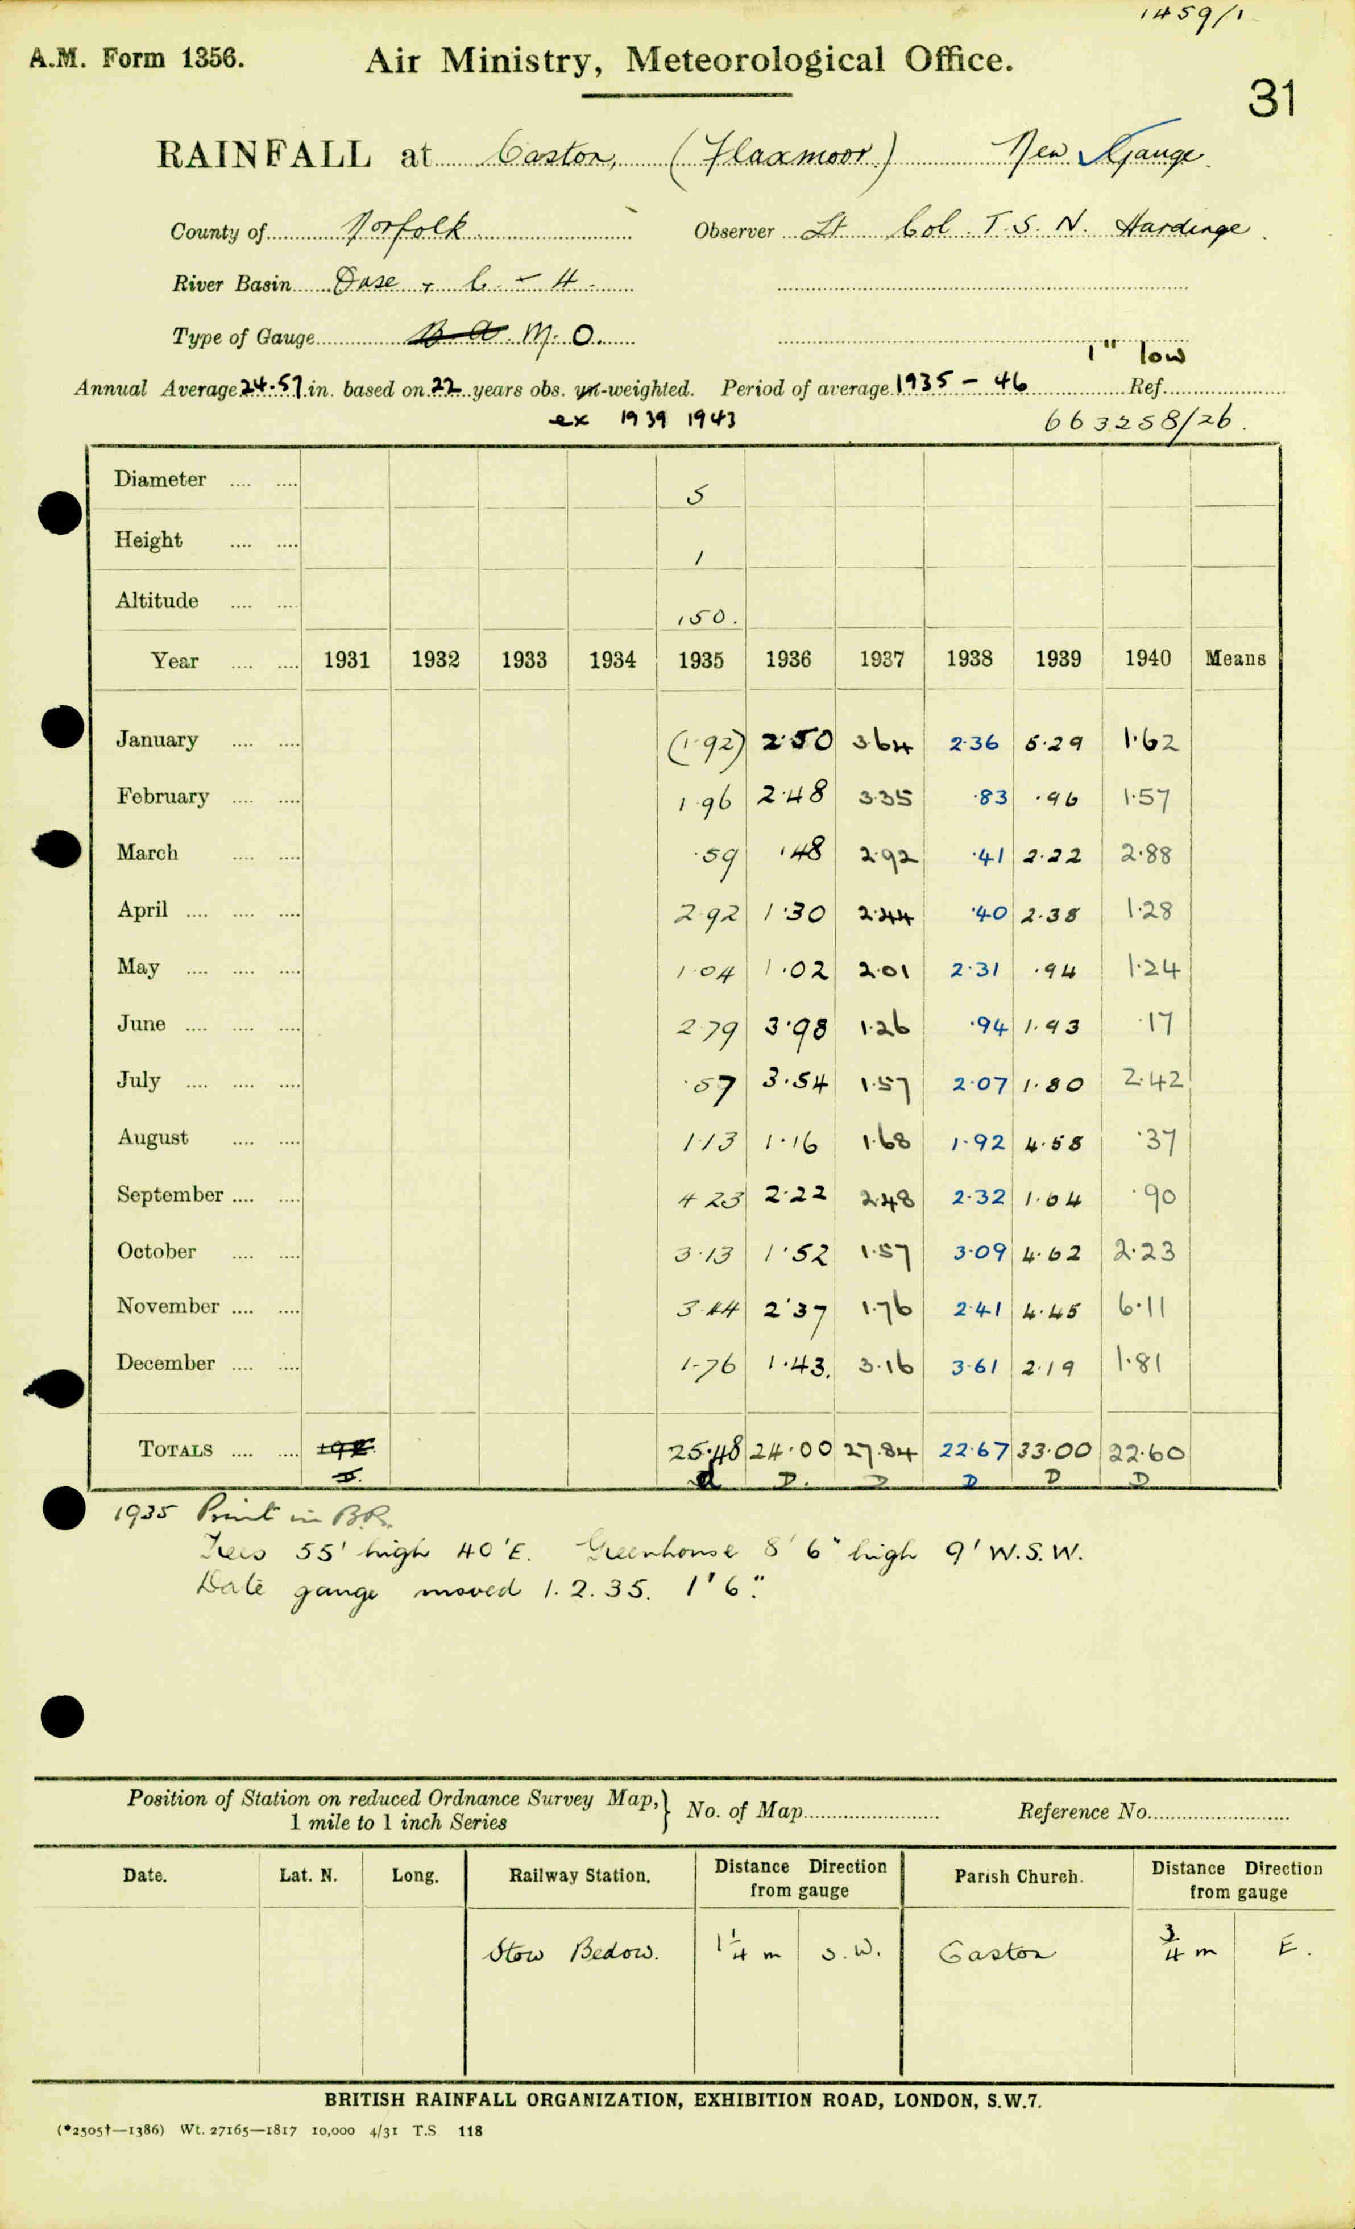 1459/1
A.M. Form 1356. Air Ministry, Meteorological Office.
31
RAINFALL at Caston, (Flaxmoor) New Gauge.
County of Norfolk Observer Lt Col. T. S. N. Hardinge.
River Basin Ouse + C - H.
Type of Gauge B a. M. O.
1" low
Annual Average 24.57 in. based on 22 years obs. un-weighted. Period of average 1935 - 46 Ref.
ex 1939 1943 663258/26.
Diameter .... .... 5
Height .... .... 1
Altitude .... .... 150.
Year .... .... 1931 1932 1933 1934 1935 1936 1937 1938 1939 1940 Means
January .... .... (1.92) 2.50 3.64 2.36 5.29 1.62
February .... .... 1.96 2.48 3.35 .83 .96 1.57
March .... .... .59 .48 2.92 .41 2.22 2.88
April .... .... .... 2.92 1.30 2.44 .40 2.38 1.28
May .... .... .... 1.04 1.02 2.01 2.31 .94 1.24
June .... .... .... 2.79 3.98 1.26 .94 1.93 .17
July .... .... .... .57 3.54 1.57 2.07 1.80 2.42
August .... .... 1.13 1.16 1.68 1.92 4.58 .37
September .... .... 4.23 2.22 2.48 2.32 1.64 .90
October .... .... 3.13 1.52 1.57 3.09 4.62 2.23
November .... .... 3.44 2.37 1.76 2.41 4.45 6.11
December .... .... 1.76 1.43. 3.16 3.61 2.19 1.81
TOTALS .... .... 25.48 24.00 27.84 22.67 33.00 22.60
d D. D D D D
1935 Print in B.R.
Trees 55' high 40' E. Greenhouse 8' 6" high 9' W.S.W.
Date gauge moved 1.2.35. 1' 6".
Position of Station on reduced Ordnance Survey Map,
1 mile to 1 inch Series } No. of Map Reference No.
Date. Lat. N. Long. Railway Station. Distance Direction from gauge Parish Church. Distance Direction from gauge
Stow Bedow. 1 1/4 m S.W. Caston 3/4 m E.
BRITISH RAINFALL ORGANIZATION, EXHIBITION ROAD, LONDON, S.W.7.
(*2505†—1386) Wt. 27165—1817 10,000 4/31 T.S 118